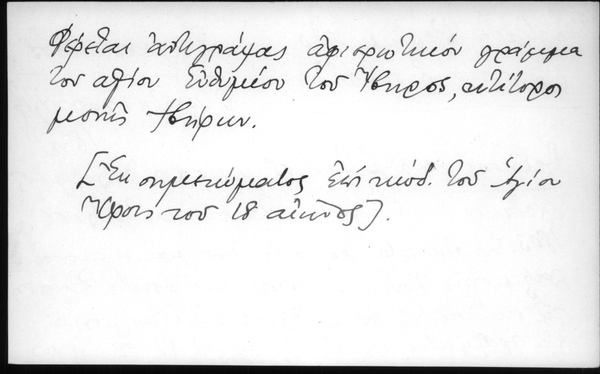 Φέρεται ἀντιγράψας ἀφιερωτικόν γράμμα
τοῦ ἁγίου Εὐθυμίου τοῦ Ἴβηρος, κτίτορος
μονῆς Ἰβήρων.
[Ἐκ σημειώματος ἐν κώδ. τοῦ Ἁγίου
Ὄρους τοῦ 18 αἰῶνος].